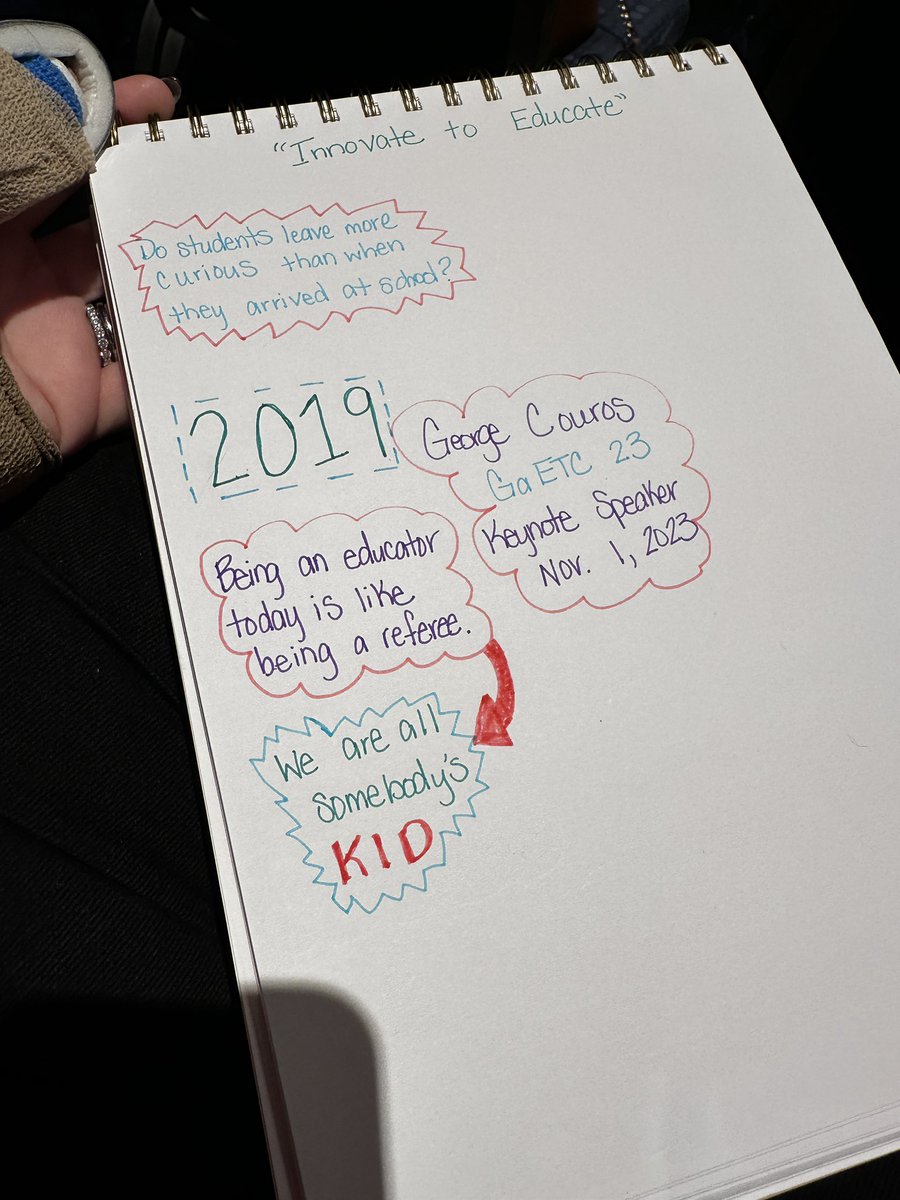 "Innovate to Educate"
Do students leave more
curious than when
they arrived at school?
2019
George Couros
GaETC 23
Keynote Speaker
Nov. 1, 2023
Being an educator
today is like
being a referee.
We are all
somebody's
KID